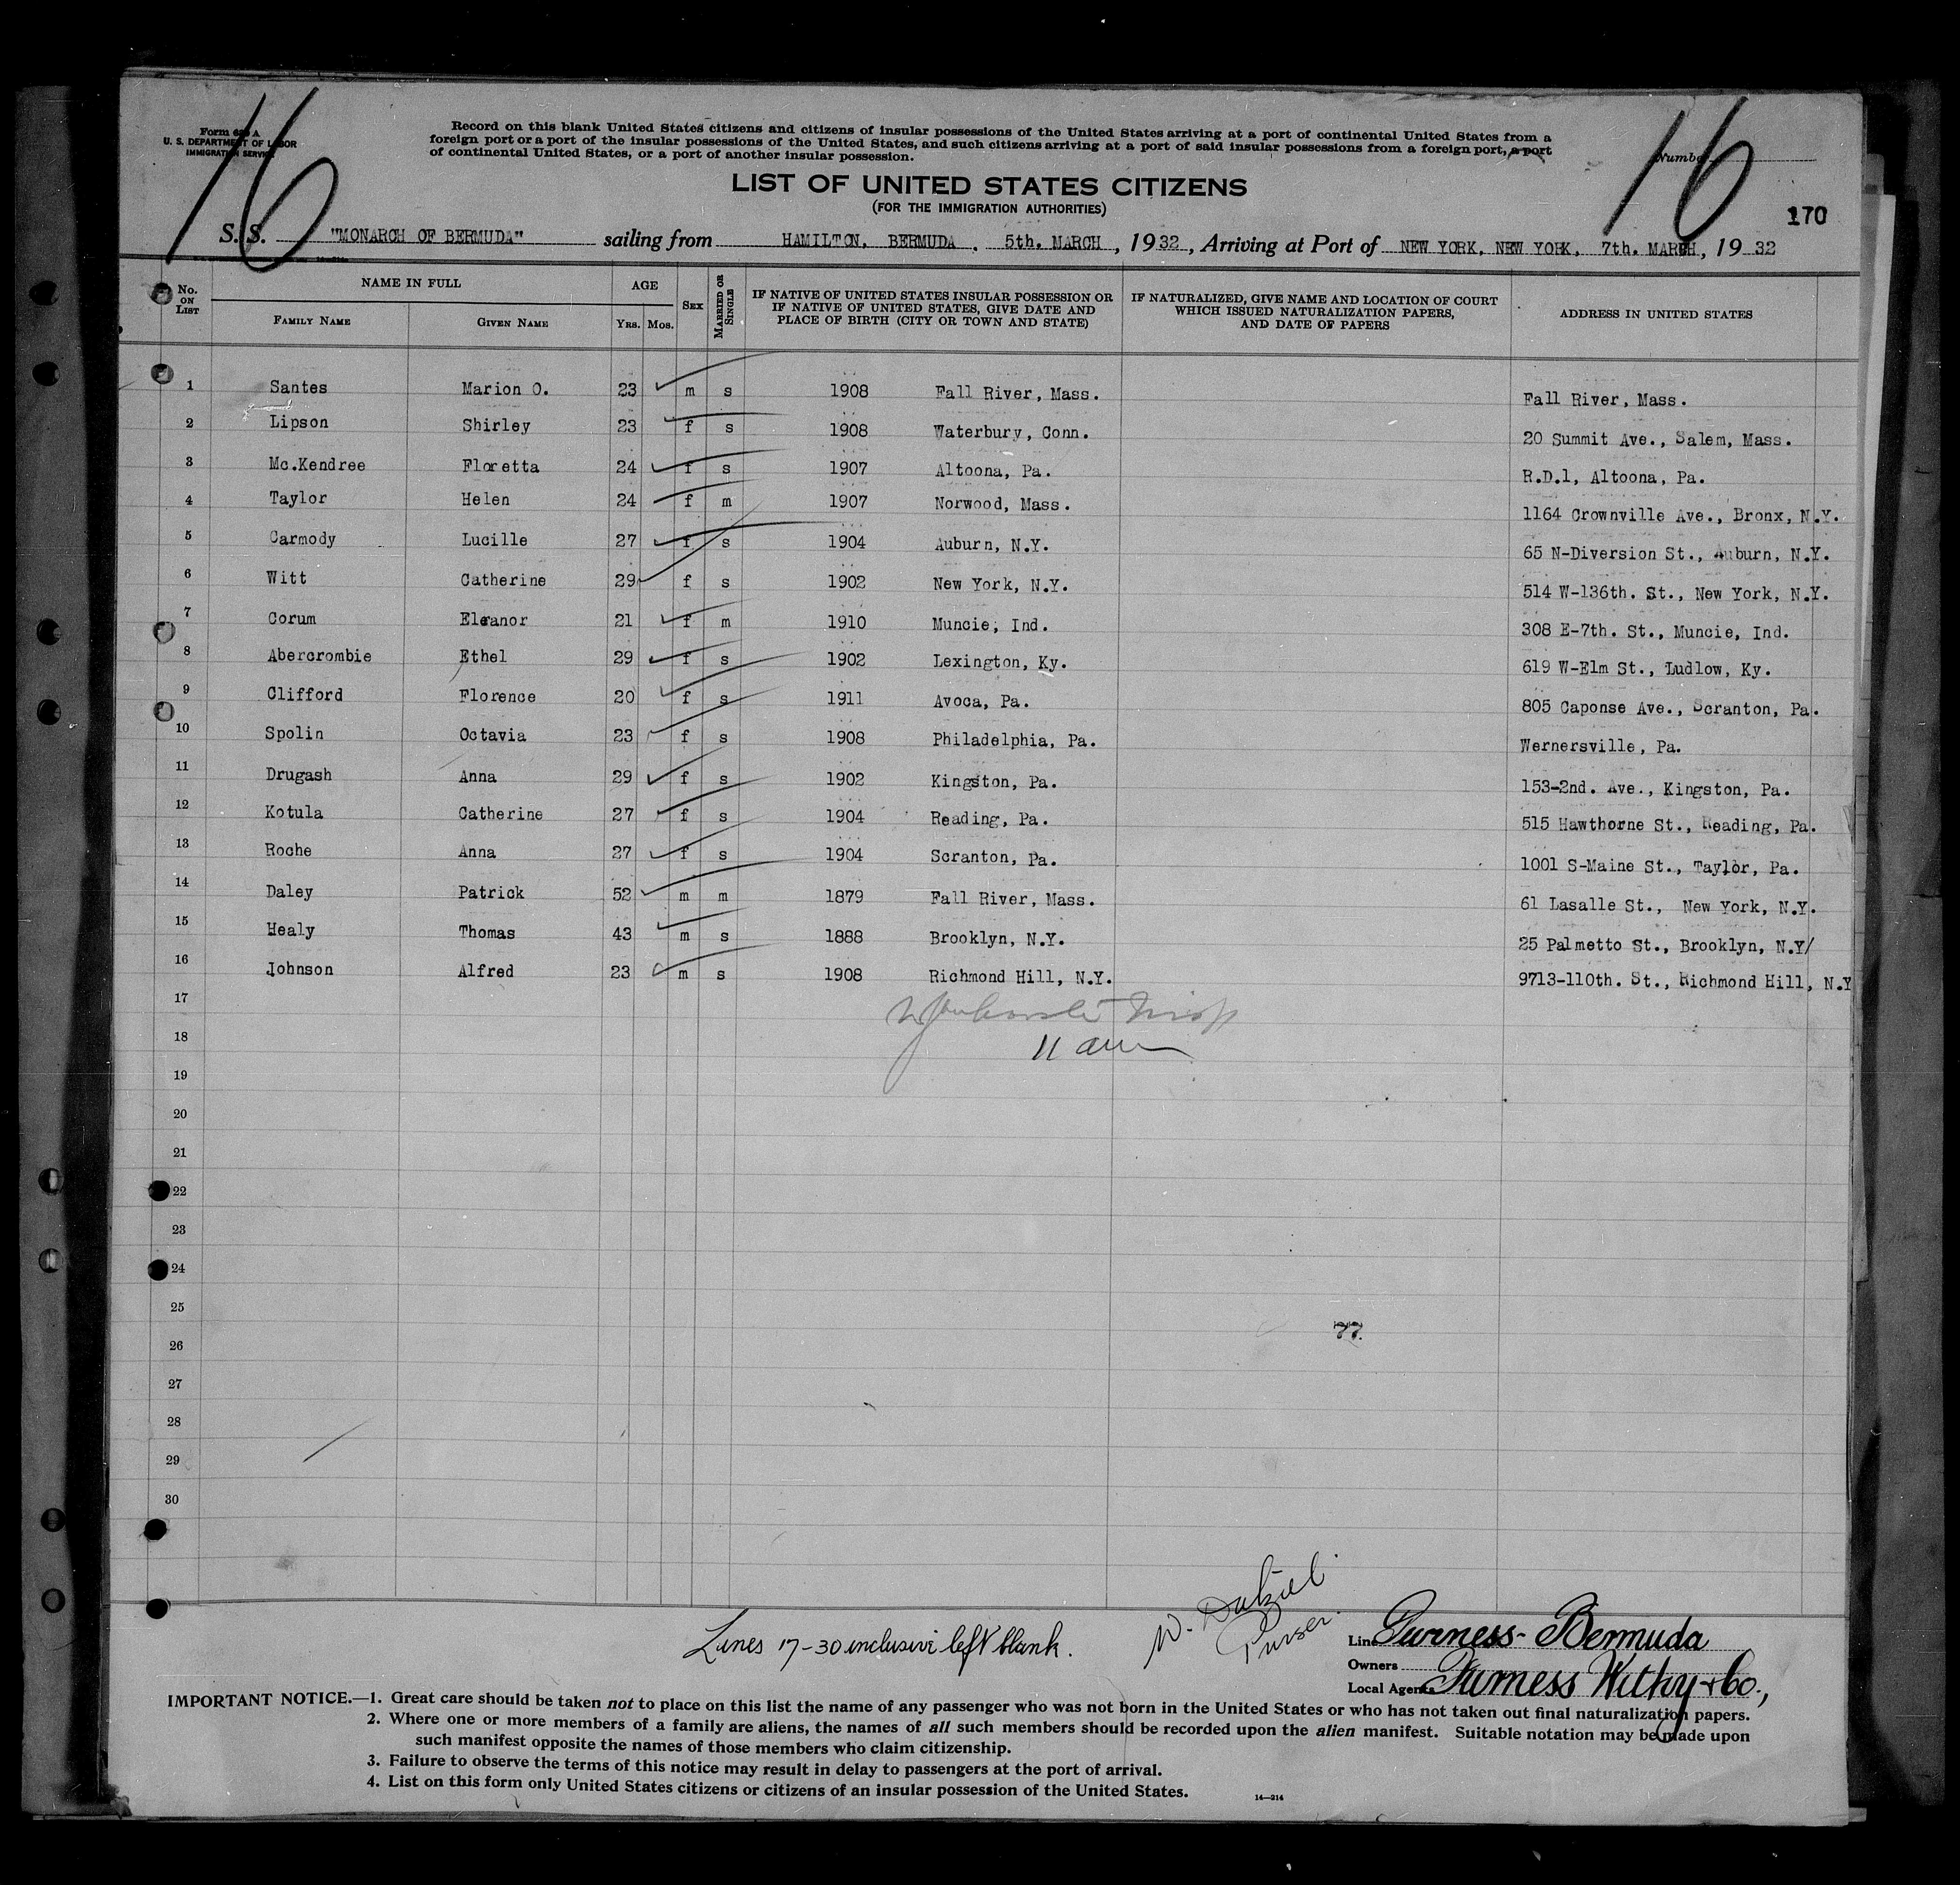 16
16
Form 630 A
U. S. DEPARTMENT OF LABOR
IMMIGRATION SERVICE
Record on this blank United States citizens and citizens of insular possessions of the United States arriving at a port of continental United States from a
foreign port or a port of the insular possessions of the United States, and such citizens arriving at a port of said insular possessions from a foreign port, a port
of continental United States, or a port of another insular possession.
Number
LIST OF UNITED STATES CITIZENS
(FOR THE IMMIGRATION AUTHORITIES)
170
S. S. "MONARCH OF BERMUDA" sailing from HAMILTON, BERMUDA, 5th. MARCH, 1932, Arriving at Port of NEW YORK, NEW YORK, 7th. MARCH, 1932
No. ON LIST NAME IN FULL FAMILY NAME GIVEN NAME AGE YRS. MOS. SEX MARRIED OR SINGLE IF NATIVE OF UNITED STATES INSULAR POSSESSION OR IF NATIVE OF UNITED STATES, GIVE DATE AND PLACE OF BIRTH (CITY OR TOWN AND STATE) IF NATURALIZED, GIVE NAME AND LOCATION OF COURT WHICH ISSUED NATURALIZATION PAPERS, AND DATE OF PAPERS ADDRESS IN UNITED STATES
1 Santes Marion O. 23 m s 1908 Fall River, Mass. Fall River, Mass.
2 Lipson Shirley 23 f s 1908 Waterbury, Conn. 20 Summit Ave., Salem, Mass.
3 Mc.Kendree Floretta 24 f s 1907 Altoona, Pa. R.D.1, Altoona, Pa.
4 Taylor Helen 24 f m 1907 Norwood, Mass. 1164 Crownville Ave., Bronx, N.Y.
5 Carmody Lucille 27 f s 1904 Auburn, N.Y. 65 N-Diversion St., Auburn, N.Y.
6 Witt Catherine 29 f s 1902 New York, N.Y. 514 W-136th. St., New York, N.Y.
7 Corum Eleanor 21 f m 1910 Muncie, Ind. 308 E-7th. St., Muncie, Ind.
8 Abercrombie Ethel 29 f s 1902 Lexington, Ky. 619 W-Elm St., Ludlow, Ky.
9 Clifford Florence 20 f s 1911 Avoca, Pa. 805 Caponse Ave., Scranton, Pa.
10 Spolin Octavia 23 f s 1908 Philadelphia, Pa. Wernersville, Pa.
11 Drugash Anna 29 f s 1902 Kingston, Pa. 153-2nd. Ave., Kingston, Pa.
12 Kotula Catherine 27 f s 1904 Reading, Pa. 515 Hawthorne St., Reading, Pa.
13 Roche Anna 27 f s 1904 Scranton, Pa. 1001 S-Maine St., Taylor, Pa.
14 Daley Patrick 52 m m 1879 Fall River, Mass. 61 Lasalle St., New York, N.Y.
15 Healy Thomas 43 m s 1888 Brooklyn, N.Y. 25 Palmetto St., Brooklyn, N.Y/
16 Johnson Alfred 23 m s 1908 Richmond Hill, N.Y. 9713-110th. St., Richmond Hill, N.Y
17
18
19
20
21
22
23
24
25
26
27
28
29
30
77.
Lines 17-30 inclusive left blank.
W. Dalziel
Purser.
Line Furness-Bermuda
Owners
Local Agents Furness Withy & Co.,
IMPORTANT NOTICE.—1. Great care should be taken not to place on this list the name of any passenger who was not born in the United States or who has not taken out final naturalization papers.
2. Where one or more members of a family are aliens, the names of all such members should be recorded upon the alien manifest. Suitable notation may be made upon
such manifest opposite the names of those members who claim citizenship.
3. Failure to observe the terms of this notice may result in delay to passengers at the port of arrival.
4. List on this form only United States citizens or citizens of an insular possession of the United States.
14—214